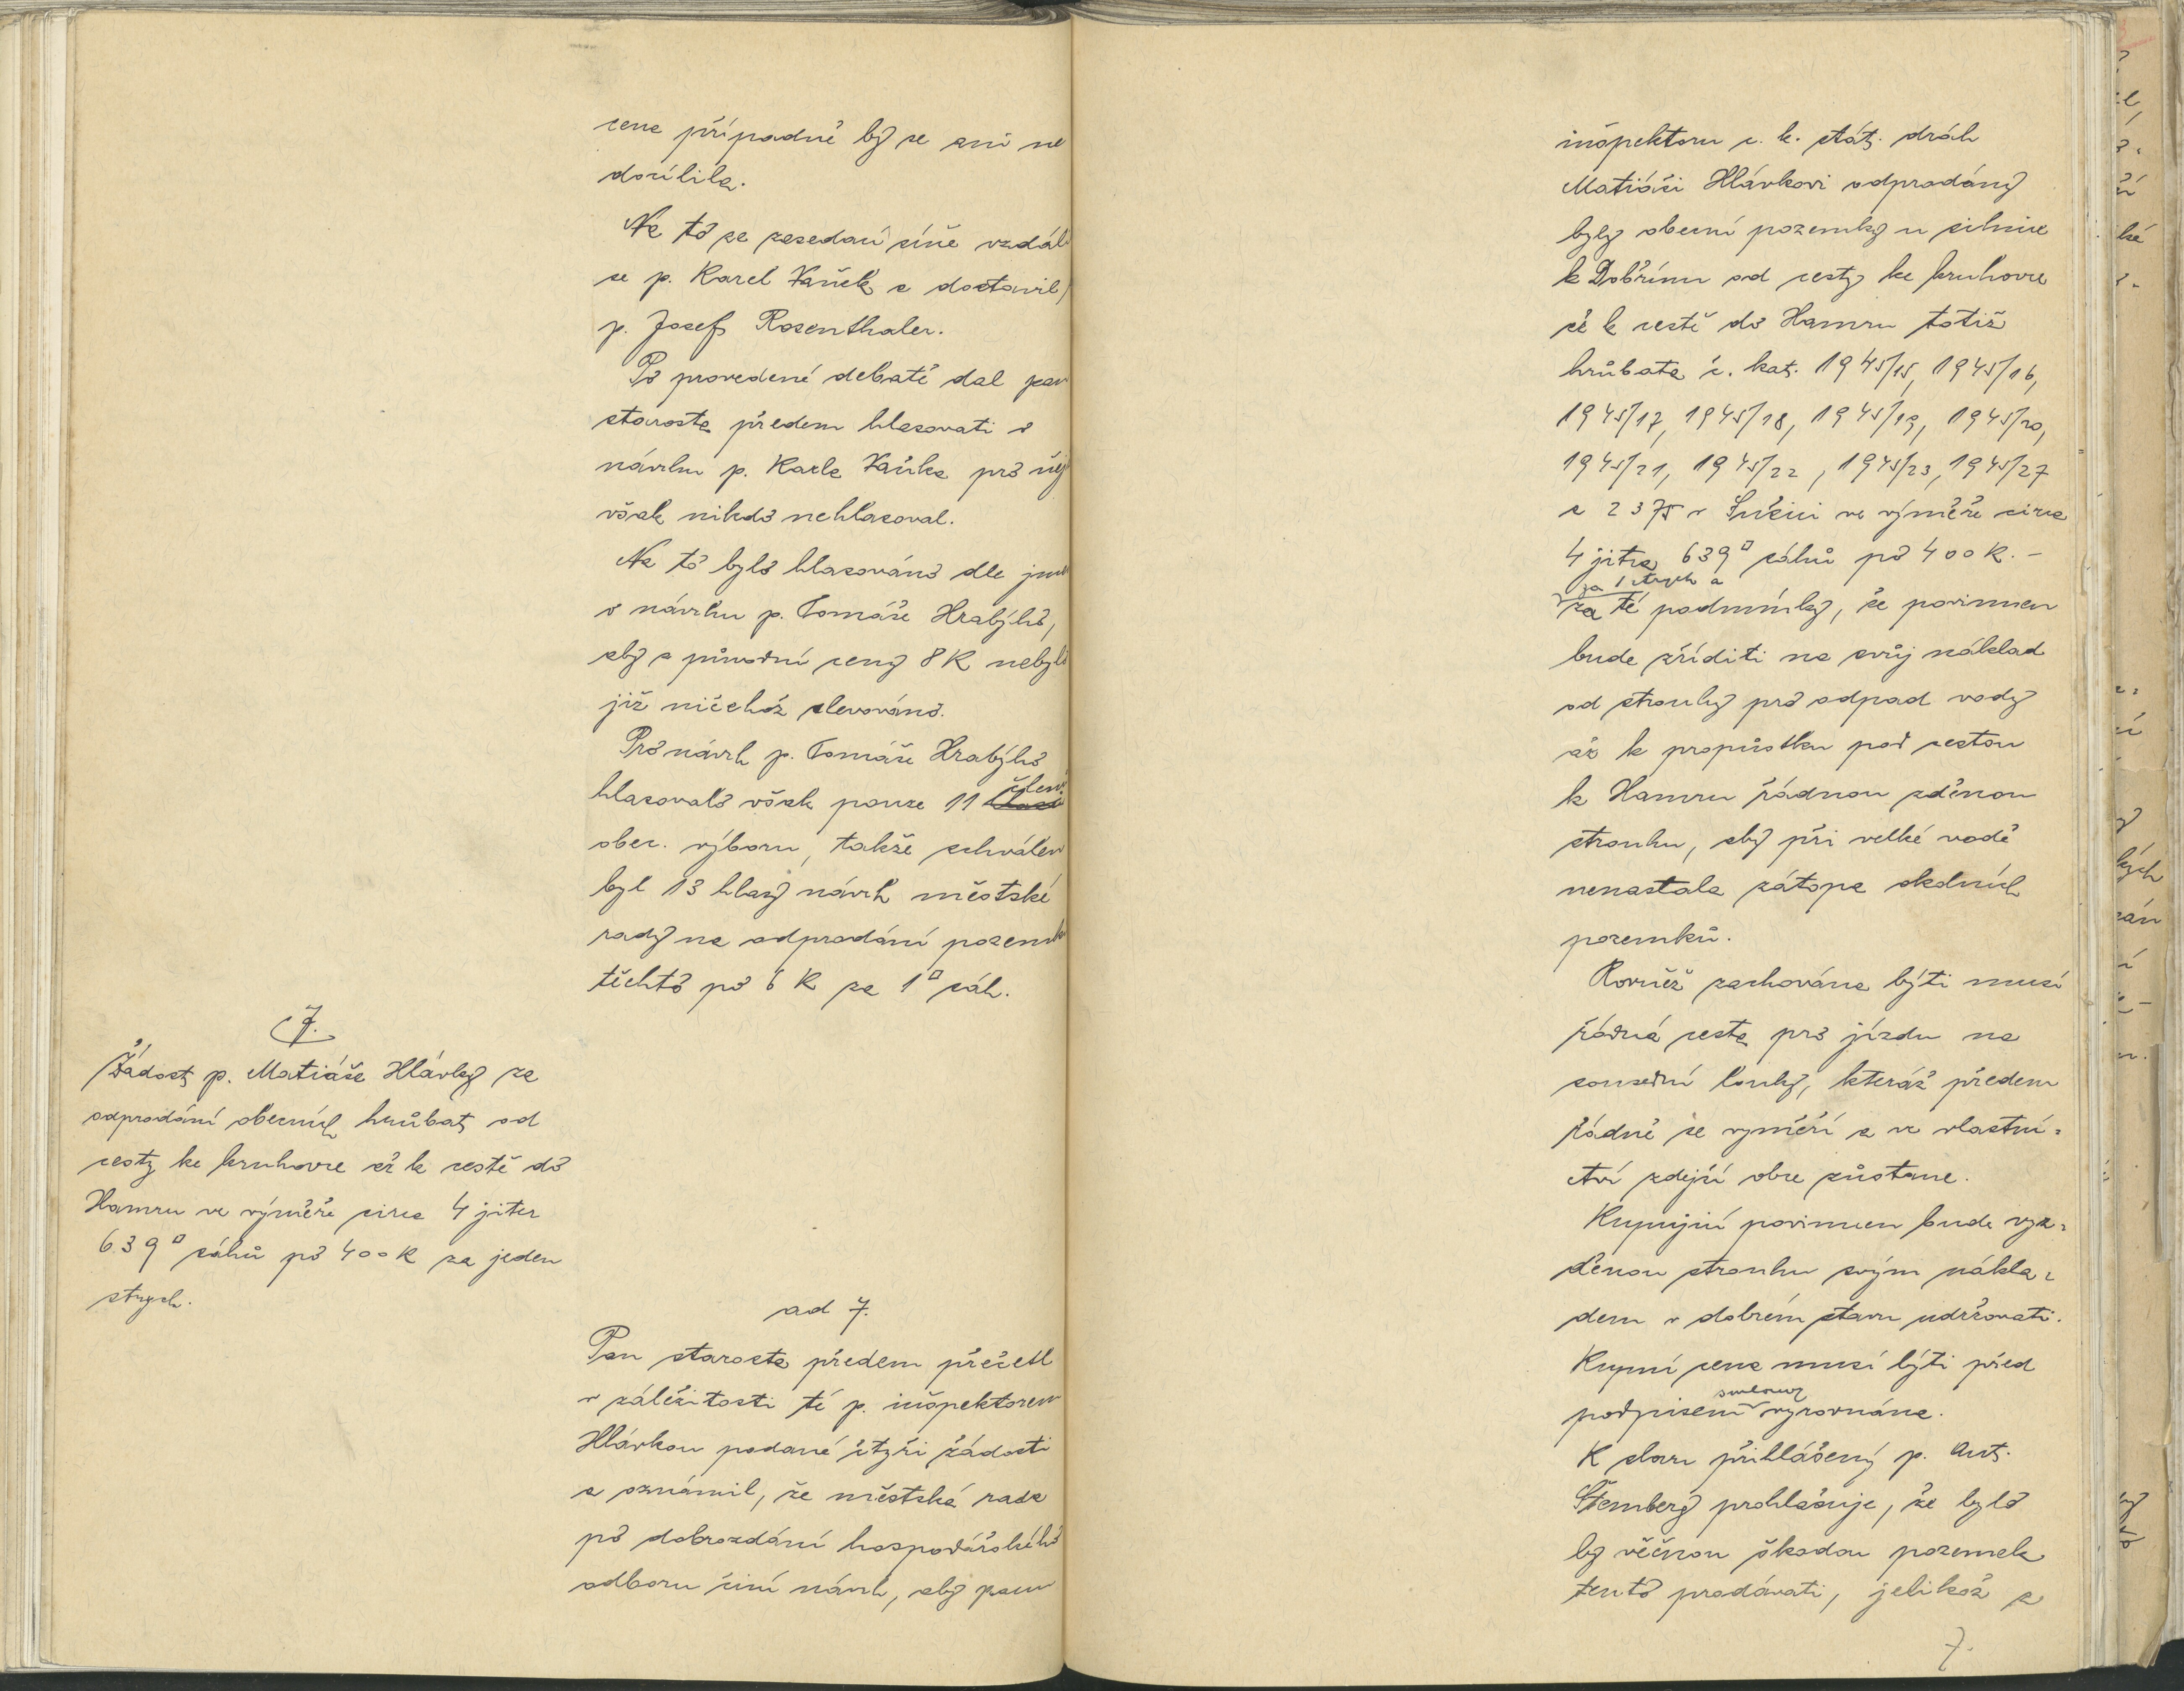 cena případně by se ani ne
docílila.
Na to ze zasedací síně vzdál
se p. Karel Vaněk a dostavil
p. Josef Rosenthaler.
Po provedené debatě dal pan
starosta předem hlasovati o
návrhu p. Karla Vaňka pro nějž
však nikdo nehlasoval.
Na to bylo hlasováno dle jmen
o návrhu p. Tomáše Hrabýho,
aby s původní ceny 8 K nebylo
již ničehož slevováno.
Pro návrh p. Tomáše Hrabýho
členů
hlasovalo však pouze 11
obec. výboru, takže schválen
byl 13 hlasy návrh městské
rady na odprodání pozemků
těchto po 6 K za 1□ sáh.
7.
Žádost p. Matiáše Hlávky za
odprodání obecních hrůbat od
cesty ke kruhovce až k cestě do
Hamru ve výměře circa 4 jiter
639□ sáhů po 400 K za jeden
strych.
ad 7.
Pan starosta předem přečetl
v záležitosti té p. inšpektorem
Hlávkou podané čtyři žádosti
a oznámil, že městská rada
po dobrozdání hospodářského
odboru činí návrh, aby panu
inšpektoru c. k. stát. drah
Matiáši Hlávkovi odprodány
byly obecní pozemky u silnice
k Dobřínu od cesty ke kruhovce
až k cestě do Hamru totiž
hrůbata č. kat. 1945/15, 1945/16,
1945/17, 1945/18, 1945/19, 1945/20,
1945/21, 1945/22, 1945/23, 1945/27
a 2375 v Sušici ve výměře circa
4 jitra 639□ sáhů po 400 K.-
za 1 strych a
za té podmínky, že povinnen
bude zříditi na svůj náklad
od strouhy pro odpad vody
až k propůstku pod cestou
k Hamru řádnou zděnou
strouhu, aby při velké vodě
nenastala zátopa okolních
pozemků.
Rovněž zachována býti musí
řádná cesta pro jízdu na
sousední louky, kteráž předem
řádně se vyměří a ve vlastni=
ctví zdejší obce zůstane.
Kupující povinnen bude vyz=
děnou strouhu svým nákla=
dem v dobrém stavu udržovati.
Kupní cena musí býti před
smlouvy
podpisem vyrovnána.
K slovu přihlášený p. Ant.
Šemberg prohlašuje, že bylo
by věčnou škodou pozemek
tento prodávati, jelikož a
7.